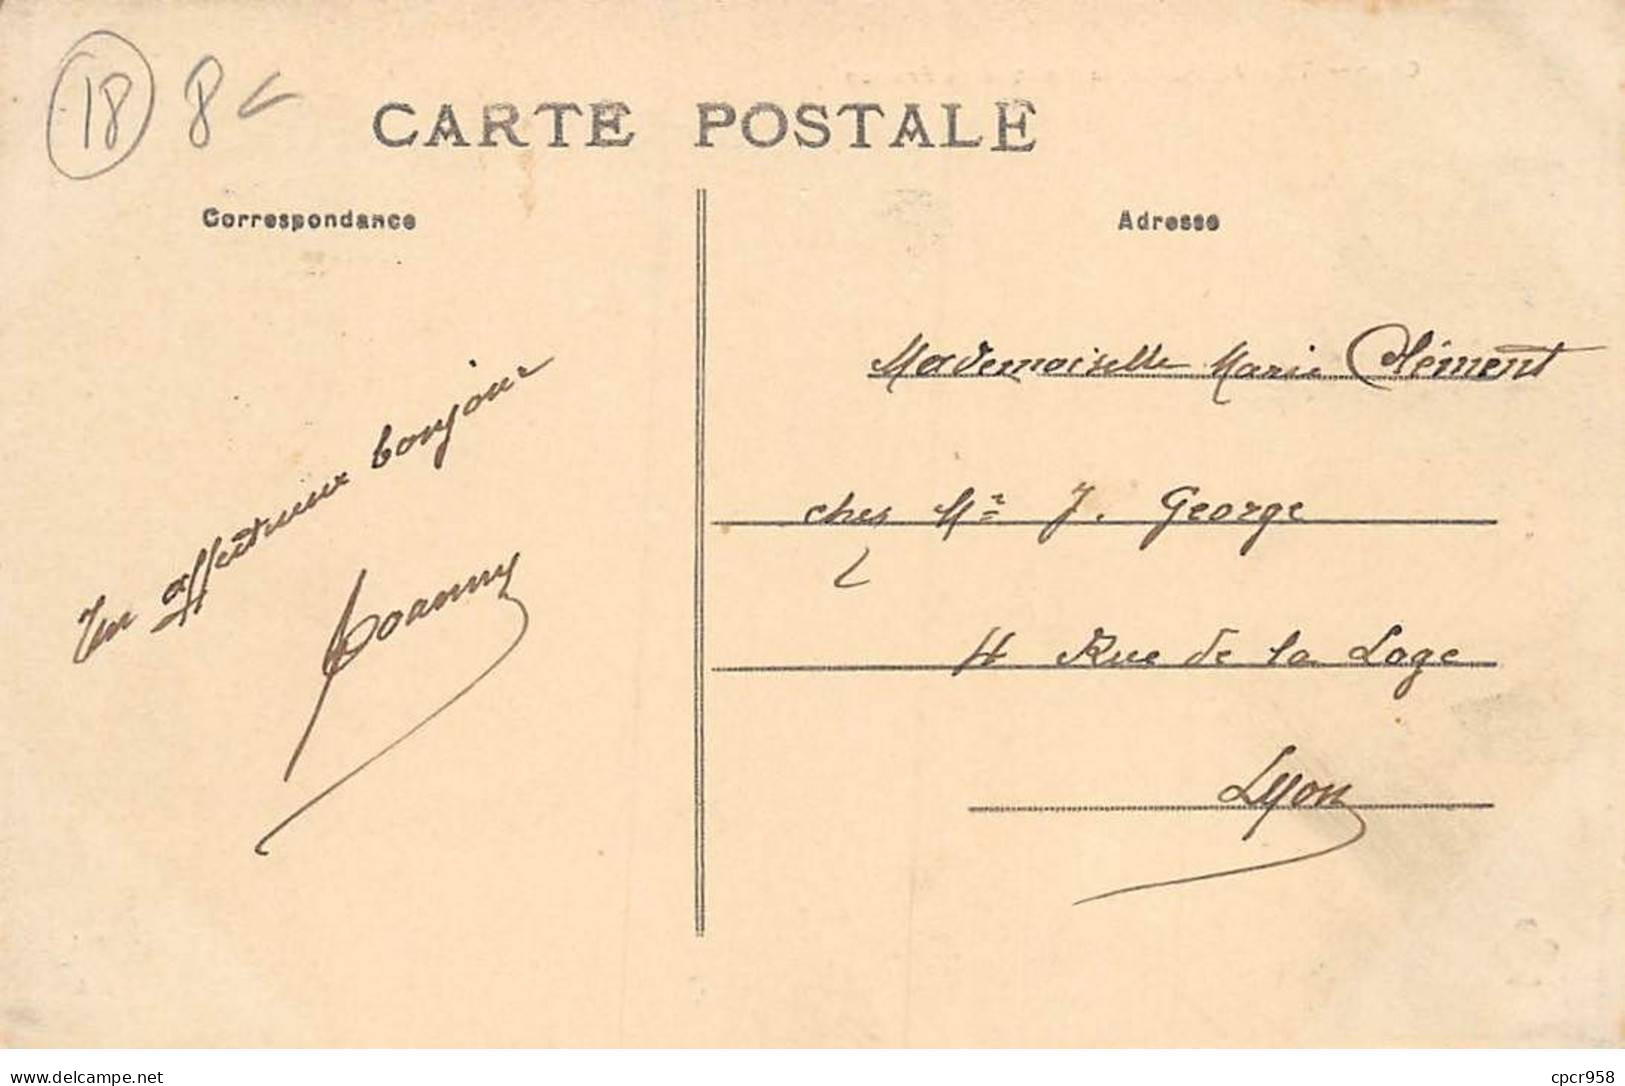 18 8
CARTE POSTALE
Correspondance
Adresse
Un affectueux bonjour
Joanny
Mademoiselle Marie Clément
chez Mr J. George
4 Rue de la Loge
Lyon
www.delcampe.net
cpcr958